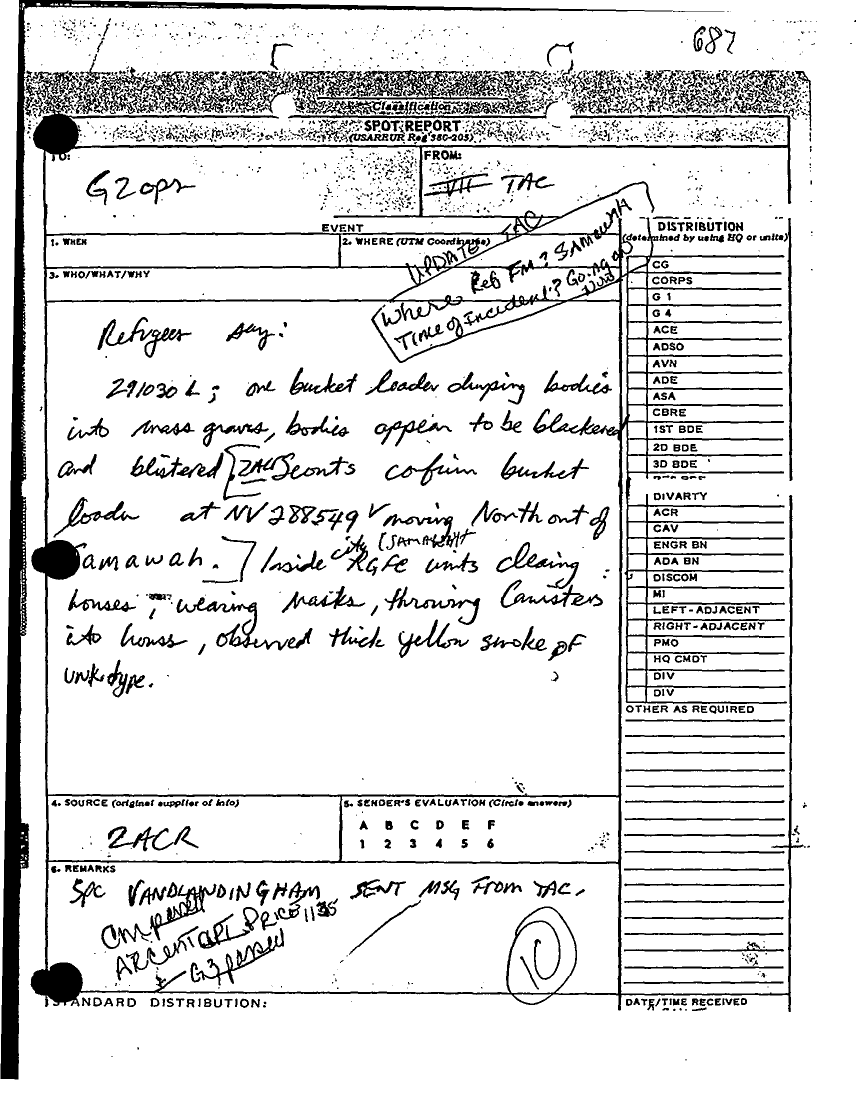 687
Classification
SPOT REPORT
(USAREUR Reg 380-205)
TO:
G2 ops
FROM:
VII TAC
EVENT
1. WHEN
2. WHERE (UTM Coordinates)
3. WHO/WHAT/WHY
UPDATE TAC
Where Ref Fm? SAMAWHA
Time of Incident? Going on
Now
Refugees say:
291030 L; one bucket loader dumping bodies
into mass graves, bodies appear to be blackened
and blistered [2ACR Scouts cofirm bucket
loader at NV 288549 moving North out of
Samawah.] Inside city (SAMAWAH) RGFC units clearing
houses, wearing Masks, throwing Canisters
into houses, observed thick yellow smoke of
unk type.
DISTRIBUTION
(determined by using HQ or units)
CG
CORPS
G 1
G 4
ACE
ADSO
AVN
ADE
ASA
CBRE
1ST BDE
2D BDE
3D BDE
DIVARTY
ACR
CAV
ENGR BN
ADA BN
DISCOM
MI
LEFT-ADJACENT
RIGHT-ADJACENT
PMO
HQ CMDT
DIV
DIV
OTHER AS REQUIRED
4. SOURCE (original supplier of info)
2ACR
5. SENDER'S EVALUATION (Circle answers)
A B C D E F
1 2 3 4 5 6
6. REMARKS
SPC VANDLANDINGHAM SENT MSG From TAC.
Cm passed
ARCENT CPT PRICE 1135
G3 passed
10
STANDARD DISTRIBUTION:
DATE/TIME RECEIVED